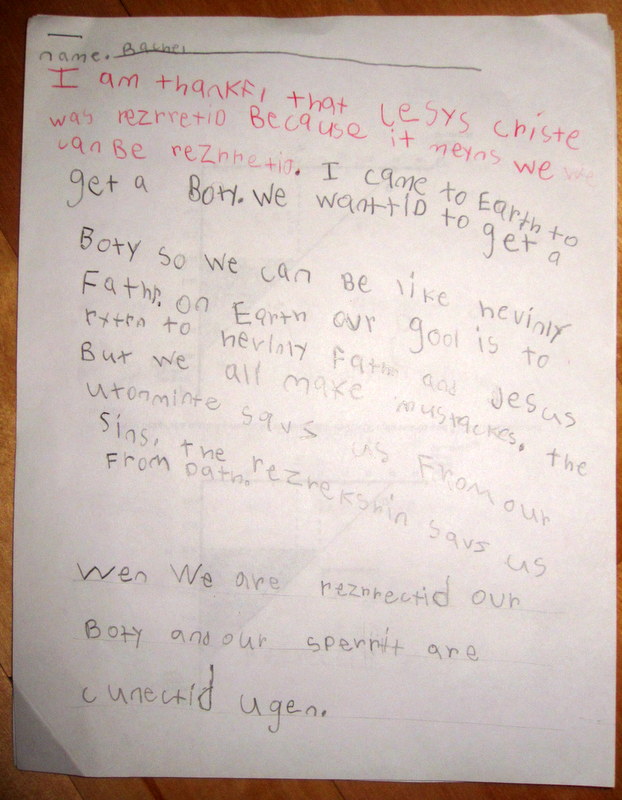 name. Rachel
I am thankfl that Lesys criste
was rezrretid Because it meyns we we
can Be rezrretid. I came to Earth to
get a Boty. We wanttid to get a
Boty so we can Be like hevinly
Fathr. on Earth our gool is to
rxtrn to hevinly Fathr and Jesus
But we all make mustackes. the
utonminte savs us From our
Sins, the rezrekshin savs us
From Dath.
Wen We are rezrrectid our
Boty and our sperrit are
cunectid ugen.